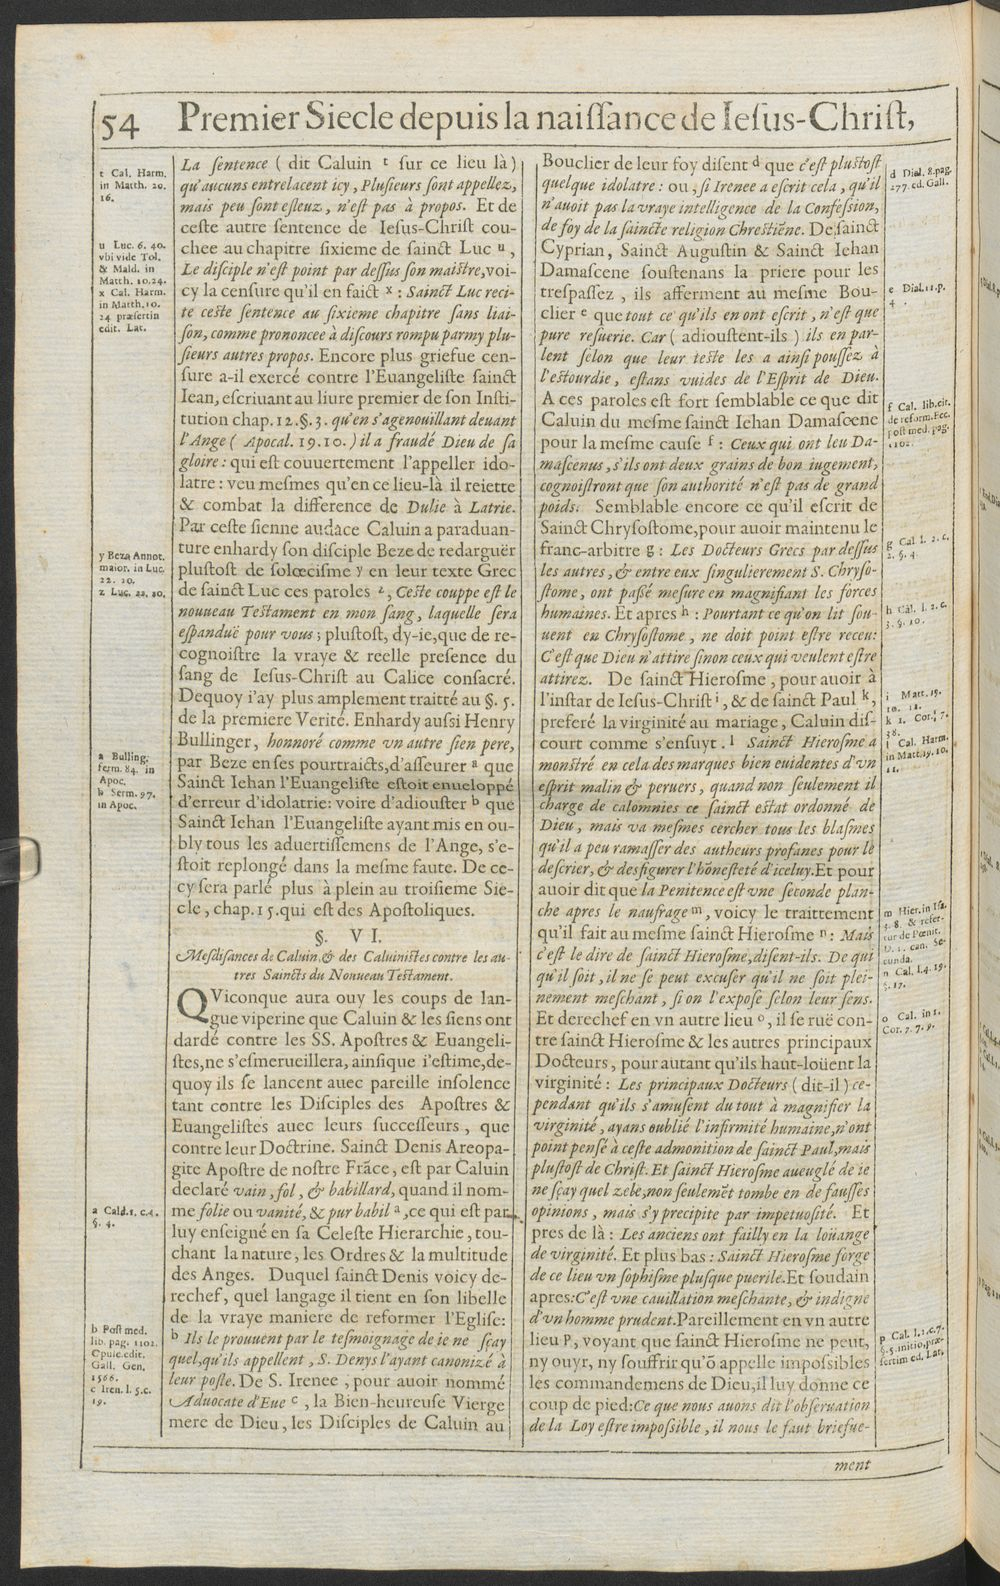 54 Premier Siecle depuis la naiſſance de Ieſus-Chriſt,
t Cal. Harm.
in Matth. 20.
16.
u Luc. 6. 40.
vbi vide Tol.
& Mald. in
Matth. 10.24.
x Cal. Harm.
in Matth. 10.
24 præſertin
edit. Lat.
y Beza Annot.
maior. in Luc.
22. 20.
z Luc. 22. 20.
a Bulling.
ſerm. 84. in
Apoc.
b Serm. 97.
in Apoc.
a Cal.l.1. c.4.
§. 4.
b Poſt med.
lib. pag. 1102.
Opuſc.edit.
Gall. Gen.
1566.
c Iren. l. 5.c.
19.
La ſentence ( dit Caluin t ſur ce lieu là )
qu'aucuns entrelacent icy , Pluſieurs ſont appellez,
mais peu ſont eſleuz , n'eſt pas à propos. Et de
ceſte autre ſentence de Ieſus-Chriſt cou-
chee au chapitre ſixieme de ſainct Luc u ,
Le diſciple n'eſt point par deſſus ſon maiſtre,voi-
cy la cenſure qu'il en faict x : Sainct Luc reci-
te ceſte ſentence au ſixieme chapitre ſans liai-
ſon, comme prononcee à diſcours rompu parmy plu-
ſieurs autres propos. Encore plus griefue cen-
ſure a-il exercé contre l'Euangeliſte ſainct
Iean, eſcriuant au liure premier de ſon Inſti-
tution chap. 12.§. 3. qu'en s'agenouillant deuant
l'Ange ( Apocal. 19. 10. ) il a fraudé Dieu de ſa
gloire : qui eſt couuertement l'appeller ido-
latre : veu meſmes qu'en ce lieu-là il reiette
& combat la difference de Dulie à Latrie.
Par ceſte ſienne audace Caluin a paraduan-
ture enhardy ſon diſciple Beze de redarguër
pluſtoſt de ſolœciſme y en leur texte Grec
de ſainct Luc ces paroles z , Ceſte couppe eſt le
nouueau Teſtament en mon ſang, laquelle ſera
eſpanduë pour vous ; pluſtoſt, dy-ie,que de re-
cognoiſtre la vraye & reelle preſence du
ſang de Ieſus-Chriſt au Calice conſacré.
Dequoy i'ay plus amplement traitté au §. 5.
de la premiere Verité. Enhardy auſsi Henry
Bullinger, honnoré comme vn autre ſien pere,
par Beze en ſes pourtraicts,d'aſſeurer a que
Sainct Iehan l'Euangeliſte eſtoit enueloppé
d'erreur d'idolatrie: voire d'adiouſter b que
Sainct Iehan l'Euangeliſte ayant mis en ou-
bly tous les aduertiſſemens de l'Ange, s'e-
ſtoit replongé dans la meſme faute. De ce-
cy ſera parlé plus à plein au troiſieme Sie-
cle, chap. 15. qui eſt des Apoſtoliques.
§. V I.
Meſdiſances de Caluin & des Caluiniſtes contre les au-
tres Saincts du Nouueau Teſtament.
QViconque aura ouy les coups de lan-
gue viperine que Caluin & les ſiens ont
dardé contre les SS. Apoſtres & Euangeli-
ſtes,ne s'eſmerueillera, ainſique i'eſtime,de-
quoy ils ſe lancent auec pareille inſolence
tant contre les Diſciples des Apoſtres &
Euangeliſtes auec leurs ſucceſſeurs , que
contre leur Doctrine. Sainct Denis Areopa-
gite Apoſtre de noſtre Frāce, eſt par Caluin
declaré vain , fol , & babillard, quand il nom-
me folie ou vanité, & pur babil a ,ce qui eſt par
luy enſeigné en ſa Celeſte Hierarchie, tou-
chant la nature, les Ordres & la multitude
des Anges. Duquel ſainct Denis voicy de-
rechef, quel langage il tient en ſon libelle
de la vraye maniere de reformer l'Egliſe:
b Ils le prouuent par le teſmoignage de ie ne ſçay
quel,qu'ils appellent , S. Denys l'ayant canonizé à
leur poſte. De S. Irenee , pour auoir nommé
Aduocate d'Eue c , la Bien-heureuſe Vierge
mere de Dieu, les Diſciples de Caluin au
Bouclier de leur foy diſent d que c'eſt pluſtoſt
quelque idolatre : ou , ſi Irenee a eſcrit cela , qu'il
n'auoit pas la vraye intelligence de la Confeſsion,
de foy de la ſaincte religion Chreſtiēne. De ſainct
Cyprian, Sainct Auguſtin & Sainct Iehan
Damaſcene ſouſtenans la priere pour les
treſpaſſez , ils afferment au meſme Bou-
clier e que tout ce qu'ils en ont eſcrit , n'eſt que
pure reſuerie. Car ( adiouſtent-ils ) ils en par-
lent ſelon que leur teſte les a ainſi pouſſez à
l'eſtourdie, eſtans vuides de l'Eſprit de Dieu.
A ces paroles eſt fort ſemblable ce que dit
Caluin du meſme ſainct Iehan Damaſcene
pour la meſme cauſe f : Ceux qui ont leu Da-
maſcenus , s'ils ont deux grains de bon iugement,
cognoiſtront que ſon authorité n'eſt pas de grand
poids. Semblable encore ce qu'il eſcrit de
Sainct Chryſoſtome,pour auoir maintenu le
franc-arbitre g : Les Docteurs Grecs par deſſus
les autres , & entre eux ſingulierement S. Chryſo-
ſtome, ont paſſé meſure en magnifiant les forces
humaines. Et apres h : Pourtant ce qu'on lit ſou-
uent en Chryſoſtome , ne doit point eſtre receu:
C'eſt que Dieu n'attire ſinon ceux qui veulent eſtre
attirez. De ſainct Hieroſme , pour auoir à
l'inſtar de Ieſus-Chriſt i , & de ſainct Paul k,
preferé la virginité au mariage, Caluin diſ-
court comme s'enſuyt . l Sainct Hieroſme a
monſtré en cela des marques bien euidentes d'vn
eſprit malin & peruers , quand non ſeulement il
charge de calomnies ce ſainct eſtat ordonné de
Dieu , mais va meſmes cercher tous les blaſmes
qu'il a peu ramaſſer des autheurs profanes pour le
deſcrier, & desfigurer l'hōneſteté d'iceluy.Et pour
auoir dit que la Penitence eſt vne ſeconde plan-
che apres le naufrage m , voicy le traittement
qu'il fait au meſme ſainct Hieroſme n : Mais
c'eſt le dire de ſainct Hieroſme,diſent-ils. De qui
qu'il ſoit , il ne ſe peut excuſer qu'il ne ſoit plei-
nement meſchant , ſi on l'expoſe ſelon leur ſens.
Et derechef en vn autre lieu o, il ſe ruë con-
tre ſainct Hieroſme & les autres principaux
Docteurs , pour autant qu'ils haut-loüent la
virginité : Les principaux Docteurs ( dit-il ) ce-
pendant qu'ils s'amuſent du tout à magnifier la
virginité , ayans oublié l'infirmité humaine, n'ont
point penſé à ceſte admonition de ſainct Paul,mais
pluſtoſt de Chriſt. Et ſainct Hieroſme aueuglé de ie
ne ſçay quel zele,non ſeulemēt tombe en de fauſſes
opinions , mais s'y precipite par impetuoſité. Et
pres de là : Les anciens ont failly en la loüange
de virginité. Et plus bas : Sainct Hieroſme forge
de ce lieu vn ſophiſme pluſque puerile.Et ſoudain
apres:C'eſt vne cauillation meſchante, & indigne
d'vn homme prudent.Pareillement en vn autre
lieu p, voyant que ſainct Hieroſme ne peut,
ny ouyr, ny ſouffrir qu'ō appelle impoſsibles
les commandemens de Dieu,il luy donne ce
coup de pied:Ce que nous auons dit l'obſeruation
de la Loy eſtre impoſsible , il nous le faut briefue-
ment
d Dial. 8.pag.
277. ed. Gall.
e Dial.11.p.
4
f Cal. lib.cit.
de reform. Ecc.
poſt med. pag.
1102.
g Cal. l. 2. c.
2. §. 4.
h Cal. l. 2. c.
3. §. 10.
i Matt. 19.
10. 12.
k 1. Cor. 7.
38.
l Cal. Harm.
in Matt.19. 10.
11.
m Hier. in Iſa.
3. 8. & refer-
tur de Pœnit.
D. 1. can. Se-
cunda.
n Cal. l.4. 19.
§. 17.
o Cal. in 1.
Cor. 7. 7. 9.
p Cal. l.2.c.7.
§. 5.initio,præ-
ſertim ed. Lat.